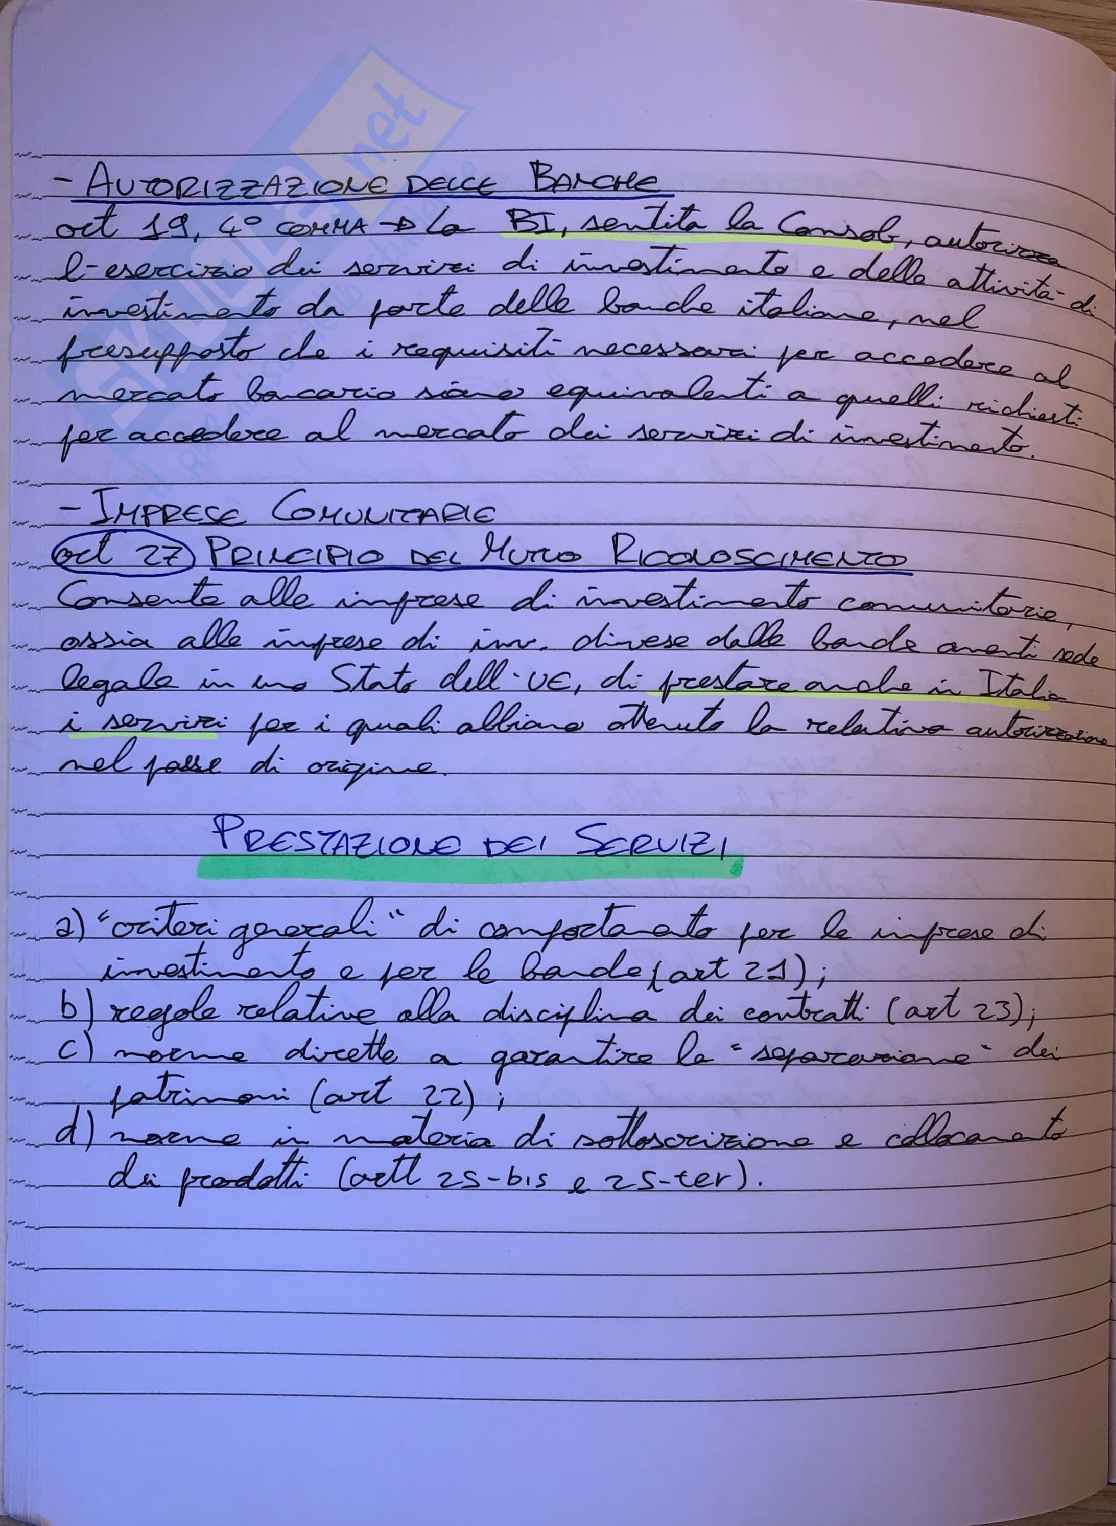 - AUTORIZZAZIONE DELLE BANCHE
art 19, 4° COMMA → La BI, sentita la Consob, autorizza
l'esercizio dei servizi di investimento e delle attività di
investimento da parte delle banche italiane, nel
presupposto che i requisiti necessari per accedere al
mercato bancario siano equivalenti a quelli richiesti
per accedere al mercato dei servizi di investimento.
- IMPRESE COMUNITARIE
art 27 PRINCIPIO DEL MUTUO RICONOSCIMENTO
Consente alle imprese di investimento comunitarie,
ossia alle imprese di inv. diverse dalle banche aventi sede
legale in uno Stato dell'UE, di prestare anche in Italia
i servizi per i quali abbiano ottenuto la relativa autorizzazione
nel paese di origine.
PRESTAZIONE DEI SERVIZI
a) "criteri generali" di comportamento per le imprese di
investimento e per le banche (art 21);
b) regole relative alla disciplina dei contratti (art 23);
c) norme dirette a garantire la "separazione" dei
patrimoni (art 22);
d) norme in materia di sottoscrizione e collocamento
dei prodotti (artt 25-bis e 25-ter).